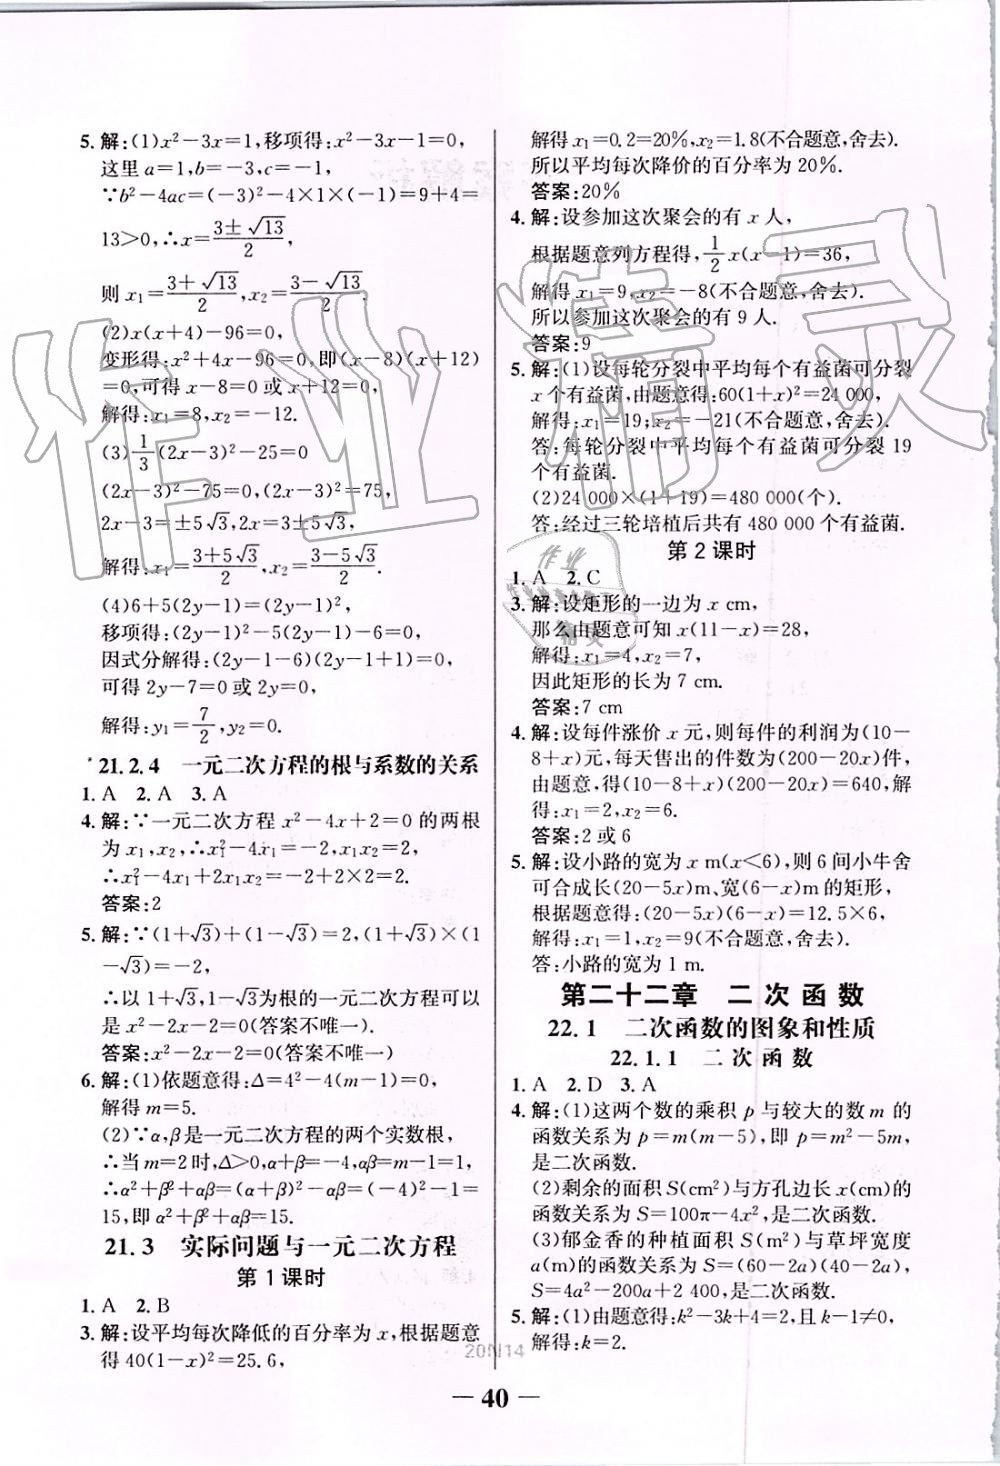 5. 解:(1)x²-3x=1,移项得:x²-3x-1=0,
这里 a=1,b=-3,c=-1
∵b²-4ac=(-3)²-4×1×(-1)=9+4=
13>0,∴x=(3±√13)/2,
则 x₁=(3+√13)/2,x₂=(3-√13)/2.
(2)x(x+4)-96=0,
变形得:x²+4x-96=0,即(x-8)(x+12)
=0,可得 x-8=0 或 x+12=0,
解得:x₁=8,x₂=-12.
(3)1/3(2x-3)²-25=0
(2x-3)²-75=0,(2x-3)²=75,
2x-3=±5√3,2x=3±5√3,
解得:x₁=(3+5√3)/2,x₂=(3-5√3)/2.
(4)6+5(2y-1)=(2y-1)²,
移项得:(2y-1)²-5(2y-1)-6=0,
因式分解得:(2y-1-6)(2y-1+1)=0,
可得 2y-7=0 或 2y=0,
解得:y₁=7/2,y₂=0.
21.2.4 一元二次方程的根与系数的关系
1. A 2. A 3. A
4. 解:∵一元二次方程 x²-4x+2=0 的两根
为 x₁,x₂,∴x₁²-4x₁=-2,x₁x₂=2,
∴x₁²-4x₁+2x₁x₂=-2+2×2=2.
答案:2
5. 解:∵(1+√3)+(1-√3)=2,(1+√3)×(1
-√3)=-2,
∴以 1+√3,1-√3为根的一元二次方程可以
是 x²-2x-2=0(答案不唯一).
答案:x²-2x-2=0(答案不唯一)
6. 解:(1)依题意得:Δ=4²-4(m-1)=0,
解得 m=5.
(2)∵α,β是一元二次方程的两个实数根,
∴当 m=2时,Δ>0,α+β=-4,αβ=m-1=1,
∴α²+β²+αβ=(α+β)²-αβ=(-4)²-1=
15,即 α²+β²+αβ=15.
21.3 实际问题与一元二次方程
第 1 课时
1. A 2. B
3. 解:设平均每次降低的百分率为 x,根据题意
得 40(1-x)²=25.6,
解得 x₁=0.2=20%,x₂=1.8(不合题意,舍去).
所以平均每次降价的百分率为 20%.
答案:20%
4. 解:设参加这次聚会的有 x 人,
根据题意列方程得,1/2x(x-1)=36,
解得 x₁=9,x₂=-8(不合题意,舍去).
所以参加这次聚会的有 9 人.
答案:9
5. 解:(1)设每轮分裂中平均每个有益菌可分裂
x 个有益菌,由题意得:60(1+x)²=24 000,
解得:x₁=19;x₂=-21(不合题意,舍去),
答:每轮分裂中平均每个有益菌可分裂 19
个有益菌.
(2)24 000×(1+19)=480 000(个).
答:经过三轮培植后共有 480 000 个有益菌.
第 2 课时
1. A 2. C
3. 解:设矩形的一边为 x cm,
那么由题意可知 x(11-x)=28,
解得:x₁=4,x₂=7,
因此矩形的长为 7 cm.
答案:7 cm
4. 解:设每件涨价 x 元,则每件的利润为(10-
8+x)元,每天售出的件数为(200-20x)件,
由题意,得(10-8+x)(200-20x)=640,解
得:x₁=2,x₂=6.
答案:2 或 6
5. 解:设小路的宽为 x m(x<6),则 6 间小牛舍
可合成长(20-5x)m、宽(6-x)m 的矩形,
根据题意得:(20-5x)(6-x)=12.5×6,
解得:x₁=1,x₂=9(不合题意,舍去).
答:小路的宽为 1 m.
第二十二章 二次函数
22.1 二次函数的图象和性质
22.1.1 二次函数
1. A 2. D 3. A
4. 解:(1)这两个数的乘积 p 与较大的数 m 的
函数关系为 p=m(m-5),即 p=m²-5m,
是二次函数.
(2)剩余的面积 S(cm²)与方孔边长 x(cm)的
函数关系为 S=100π-4x²,是二次函数.
(3)郁金香的种植面积 S(m²)与草坪宽度
a(m)的函数关系为 S=(60-2a)(40-2a),
S=4a²-200a+2 400,是二次函数.
5. 解:(1)由题意得:k²-3k+4=2,且 k-1≠0,
解得:k=2.
20N14
— 40 —
作业精灵